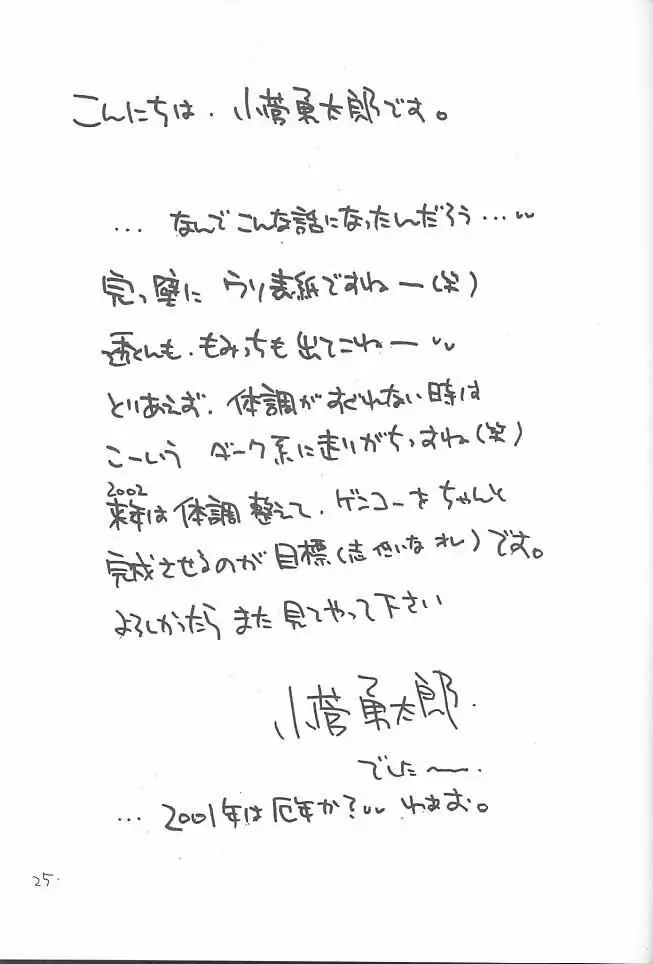 こんにちは. 小菅勇太郎です。
... なんでこんな話になったんだろう...
完っ壁に ウリ表紙ですねー(笑)
透くんも、もみっちも出てこねー
とりあえず、体調がすぐれない時は
こーいう ダーク系に走りがちっすね(笑)
2002
来年は体調整えて、ゲンコーをちゃんと
完成させるのが目標(志低いなオレ)です。
よろしかったら また見てやって下さい
小菅勇太郎.
でした〜.
... 2001年は厄年か? わぁお。
25.